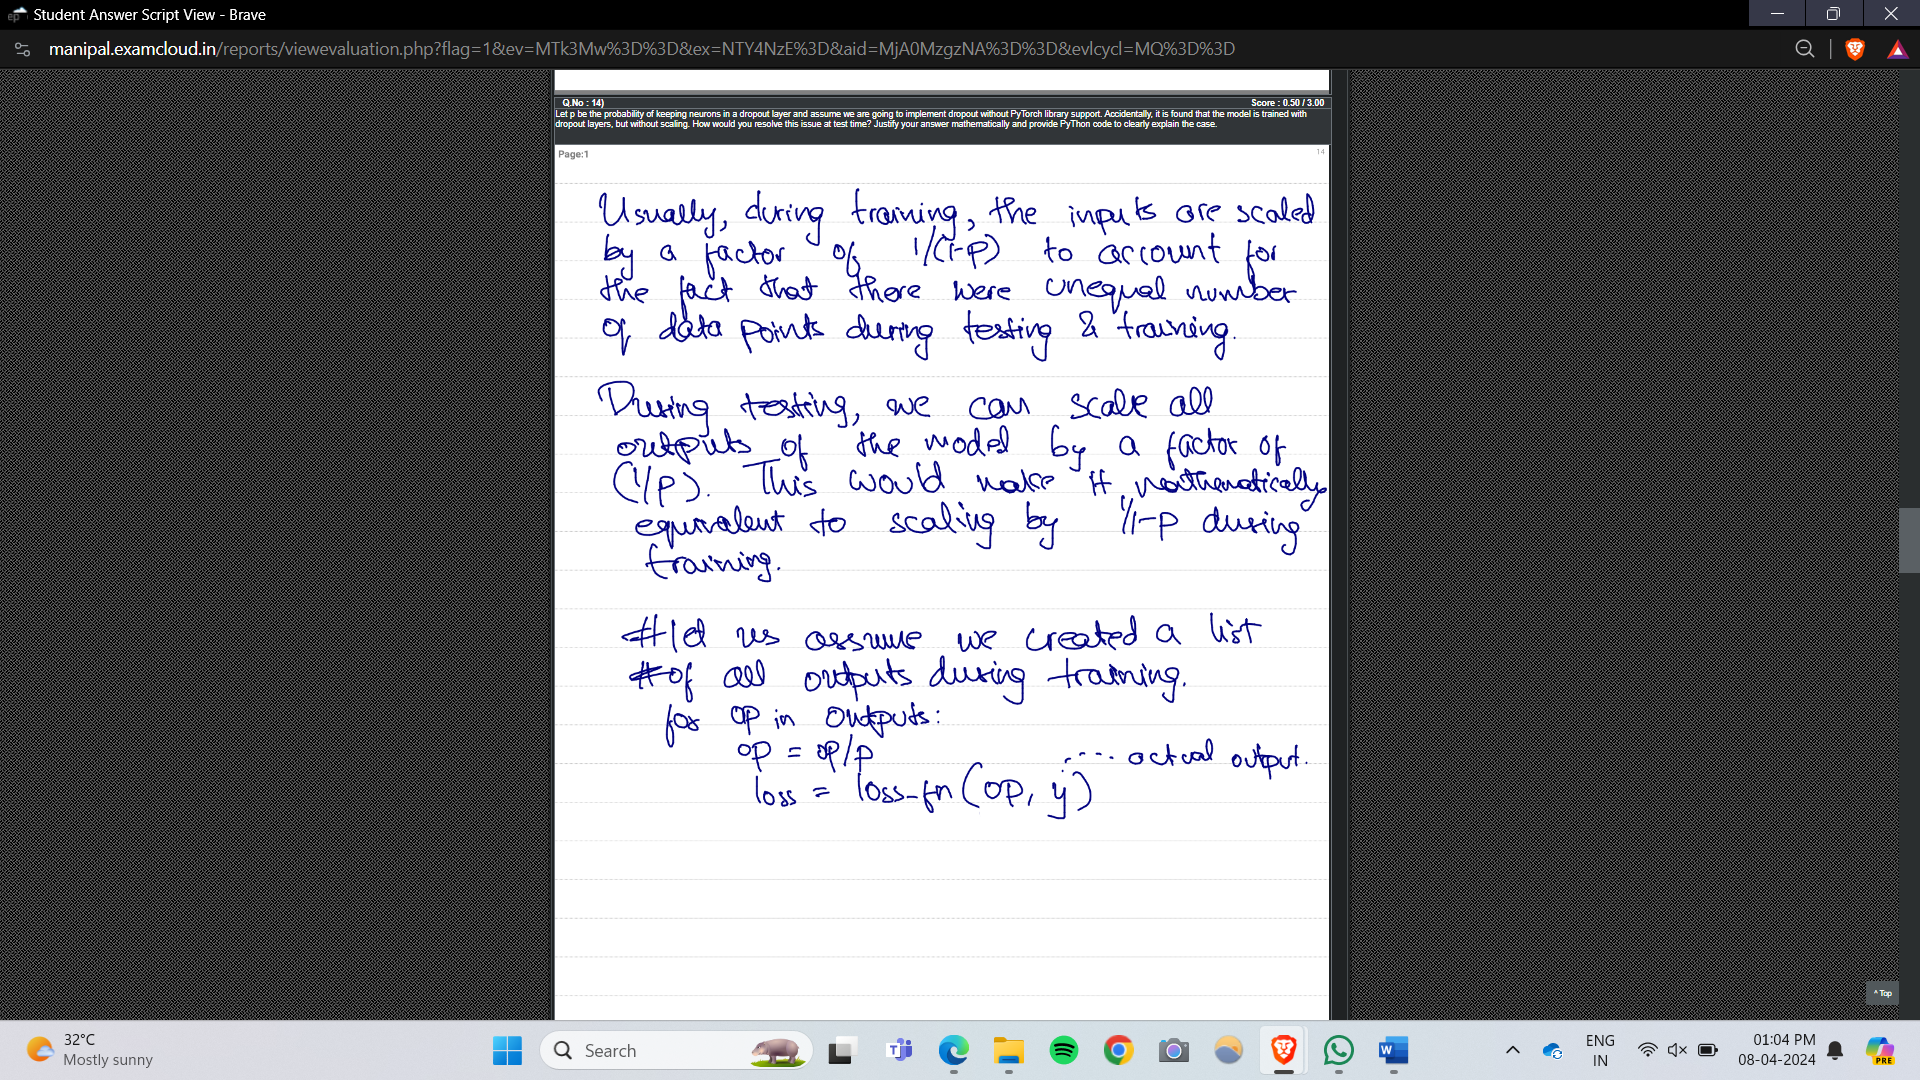 Student Answer Script View - Brave
manipal.examcloud.in/reports/viewevaluation.php?flag=1&ev=MTk3Mw%3D%3D&ex=NTY4NzE%3D&aid=MjA0MzgzNA%3D%3D&evlcycl=MQ%3D%3D
Q.No : 14)
Score : 0.50 / 3.00
Let p be the probability of keeping neurons in a dropout layer and assume we are going to implement dropout without PyTorch library support. Accidentally, it is found that the model is trained with
dropout layers, but without scaling. How would you resolve this issue at test time? Justify your answer mathematically and provide PyThon code to clearly explain the case.
Page:1
14
Usually, during training, the inputs are scaled
by a factor of 1/(1-p) to account for
the fact that there were unequal number
of data points during testing & training.
During testing, we can scale all
outputs of the model by a factor of
(1/p). This would make it mathematically
equivalent to scaling by 1/1-p during
training.
#let us assume we created a list
#of all outputs during training.
for op in outputs:
op = op/p
.... actual output.
loss = loss-fn (op, y)
^ Top
32°C
Mostly sunny
Search
ENG
IN
01:04 PM
08-04-2024
PRE